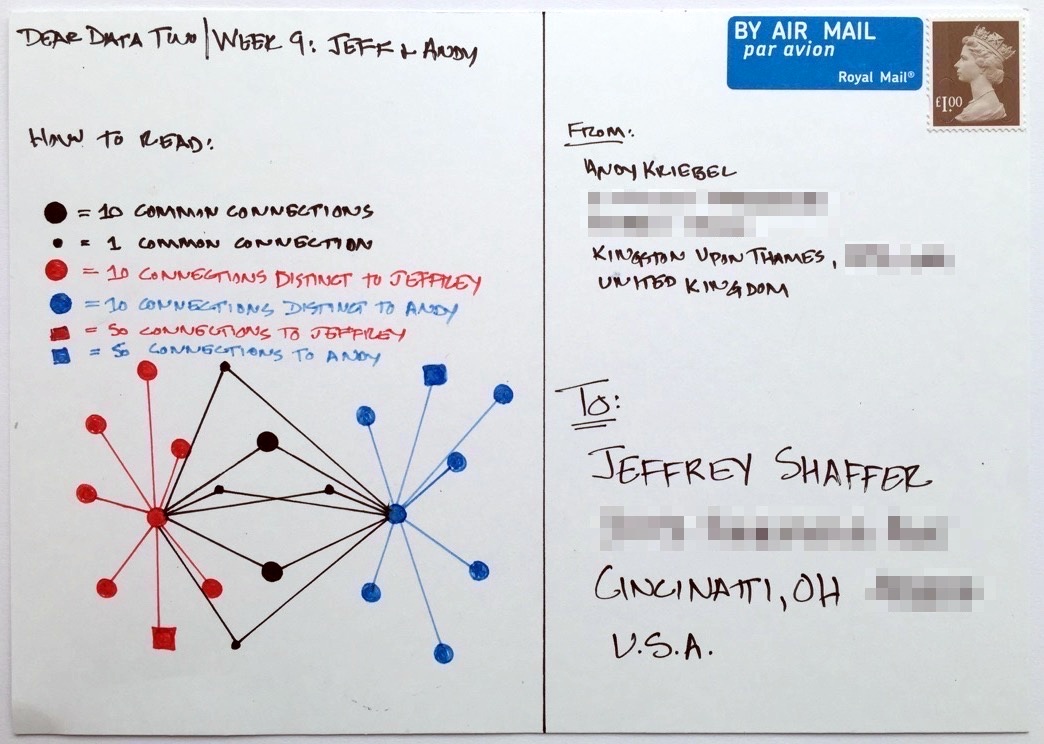 DEAR DATA TWO | WEEK 9: JEFF & ANDY
HOW TO READ:
= 10 COMMON CONNECTIONS
= 1 COMMON CONNECTION
= 10 CONNECTIONS DISTINCT TO JEFFREY
= 10 CONNECTIONS DISTINCT TO ANDY
= 50 CONNECTIONS TO JEFFREY
= 50 CONNECTIONS TO ANDY
BY AIR MAIL
par avion
Royal Mail®
£1.00
FROM:
ANDY KRIEBEL
KINGSTON UPON THAMES,
UNITED KINGDOM
TO:
JEFFREY SHAFFER
CINCINATTI, OH
U.S.A.